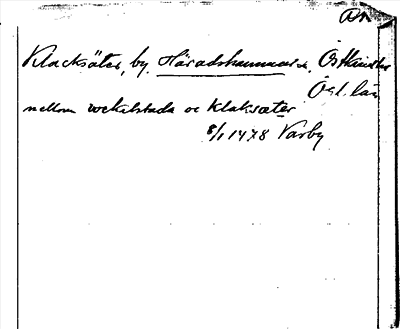 DN
Klacksäter, by. Häradshammar s. Östkinds hd
Ögl. län
mellom vekalstada oc klaksæter
8/1 1478 Varby